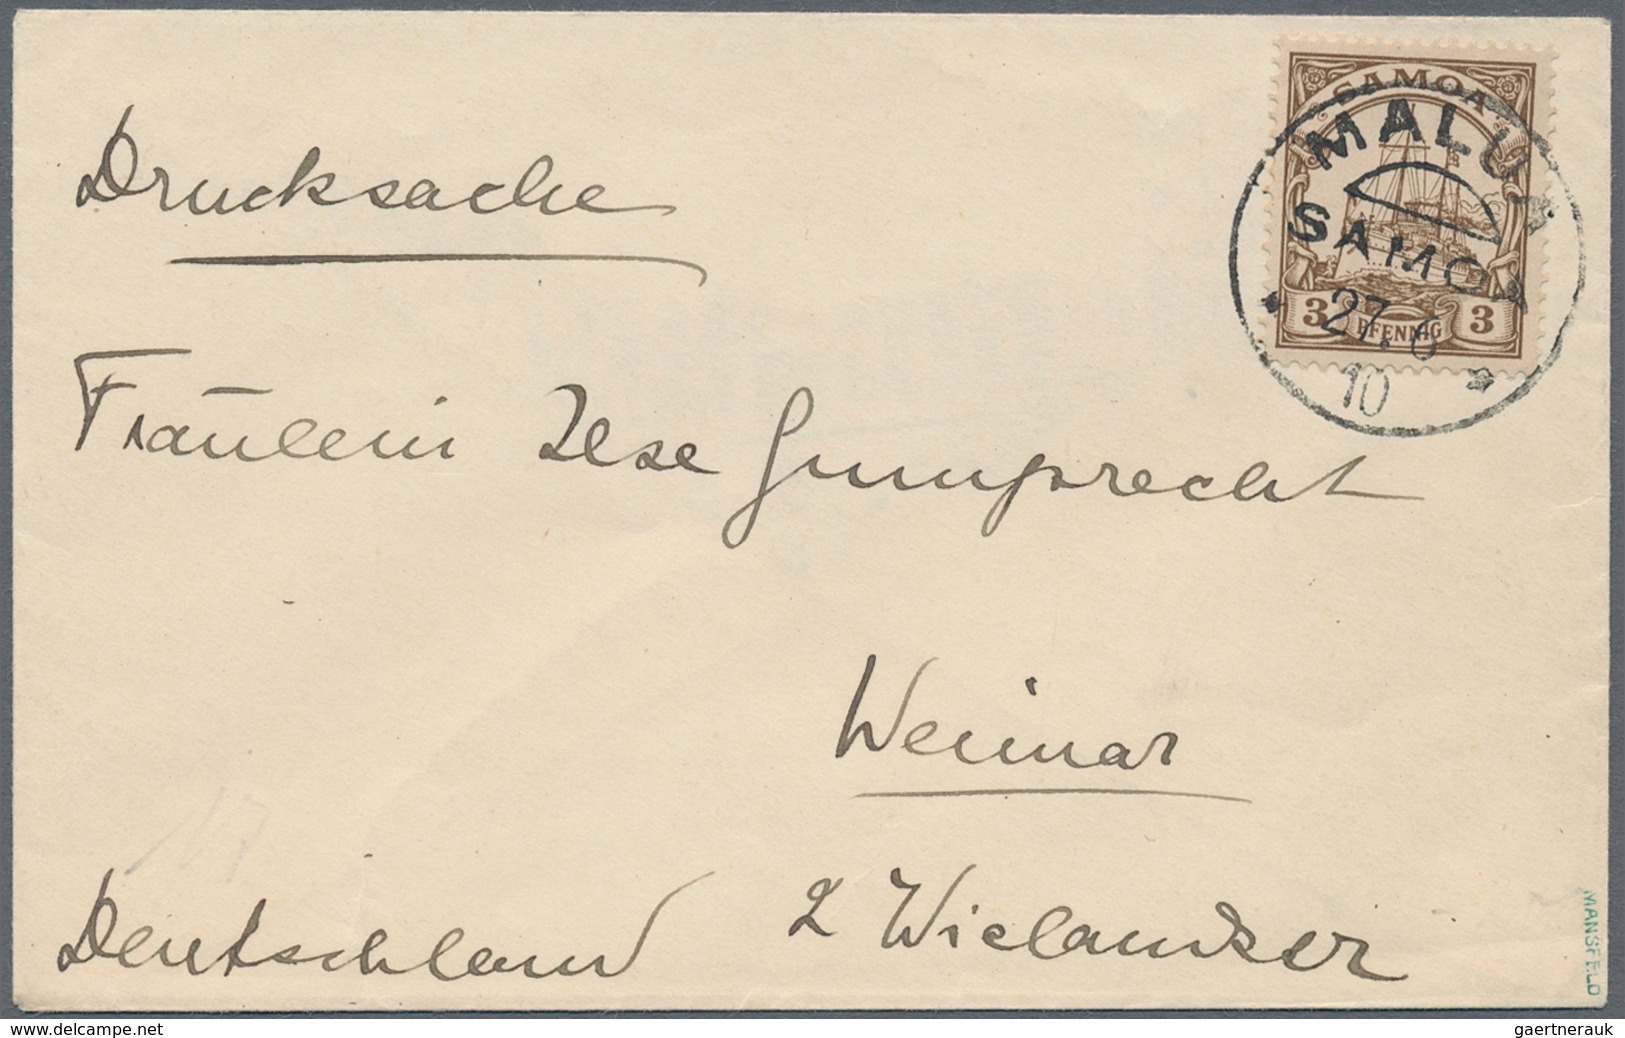 SAMOA
MALUA
SAMOA
27.6
10
3 PFENNIG 3
Drucksache
Fräulein Ilse Gumprecht
Weimar
Deutschland 2 Wielandstr
MANSFELD
www.delcampe.net
gaertnerauk